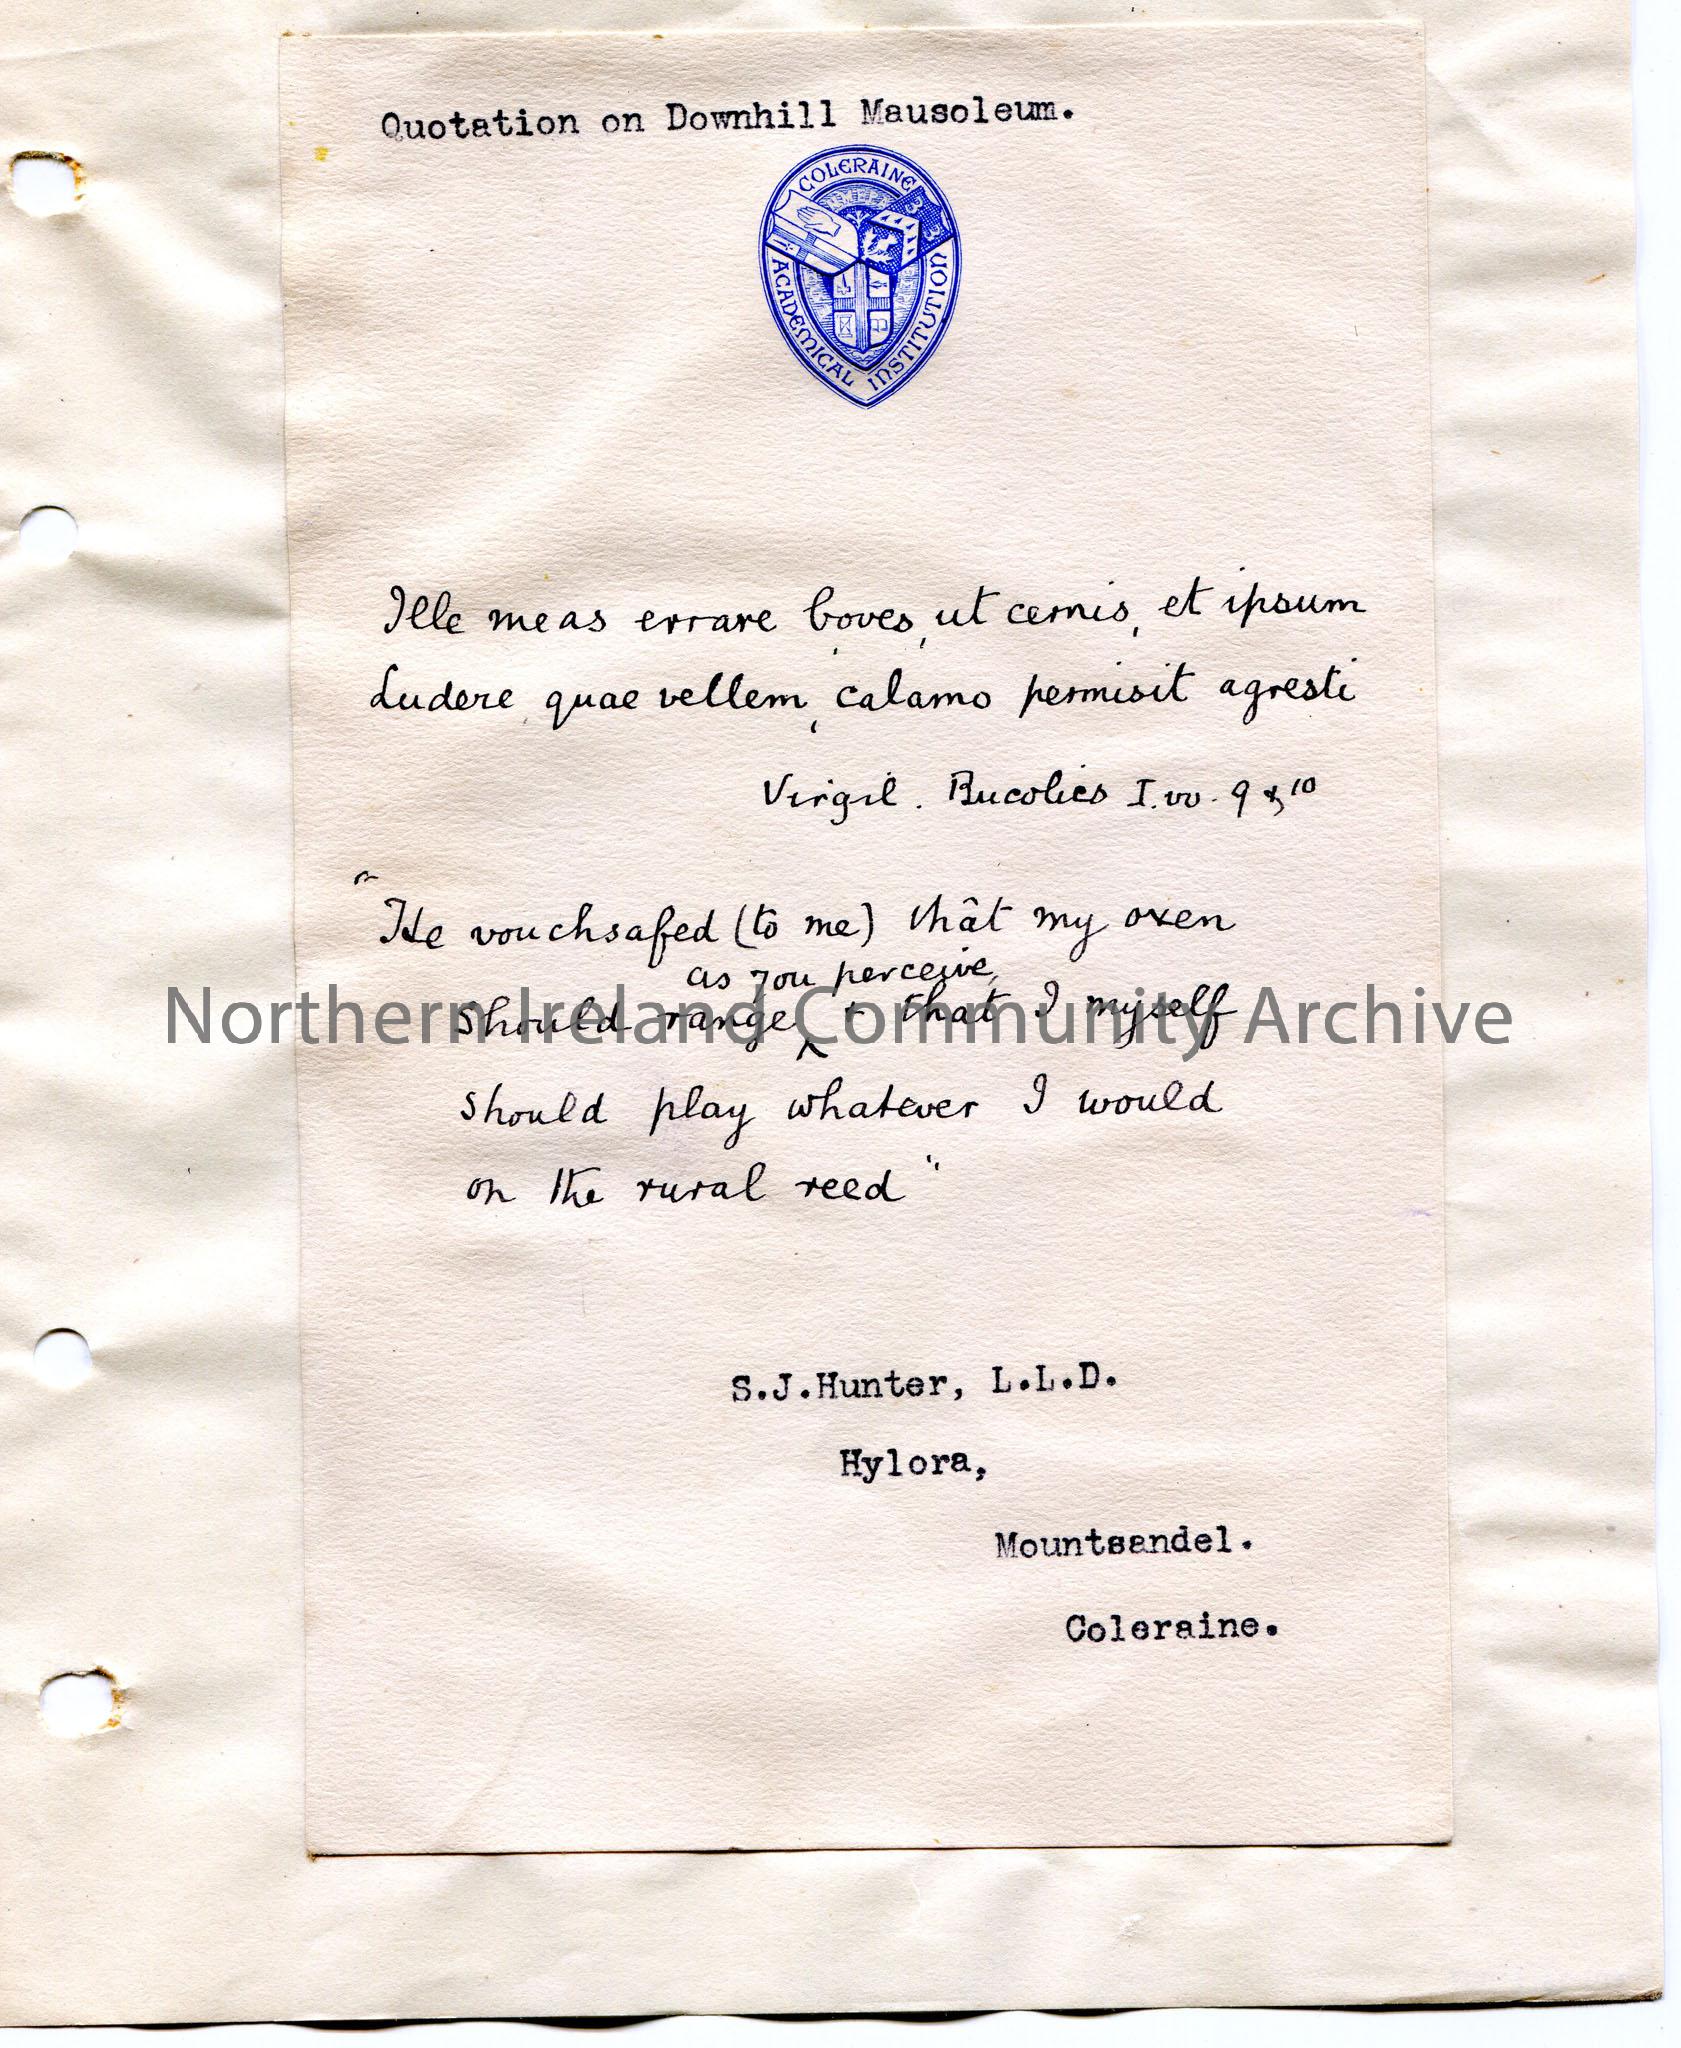 Quotation on Downhill Mausoleum.
COLERAINE
ACADEMICAL INSTITUTION
Ille meas errare boves, ut cernis, et ipsum
Ludere quae vellem, calamo permisit agresti
Virgil. Bucolics I. vv. 9 & 10
"He vouchsafed (to me) that my oxen
as you perceive,
should range + that I myself
should play whatever I would
on the rural reed"
Northern Ireland Community Archive
S.J.Hunter, L.L.D.
Hylora,
Mountsandel.
Coleraine.